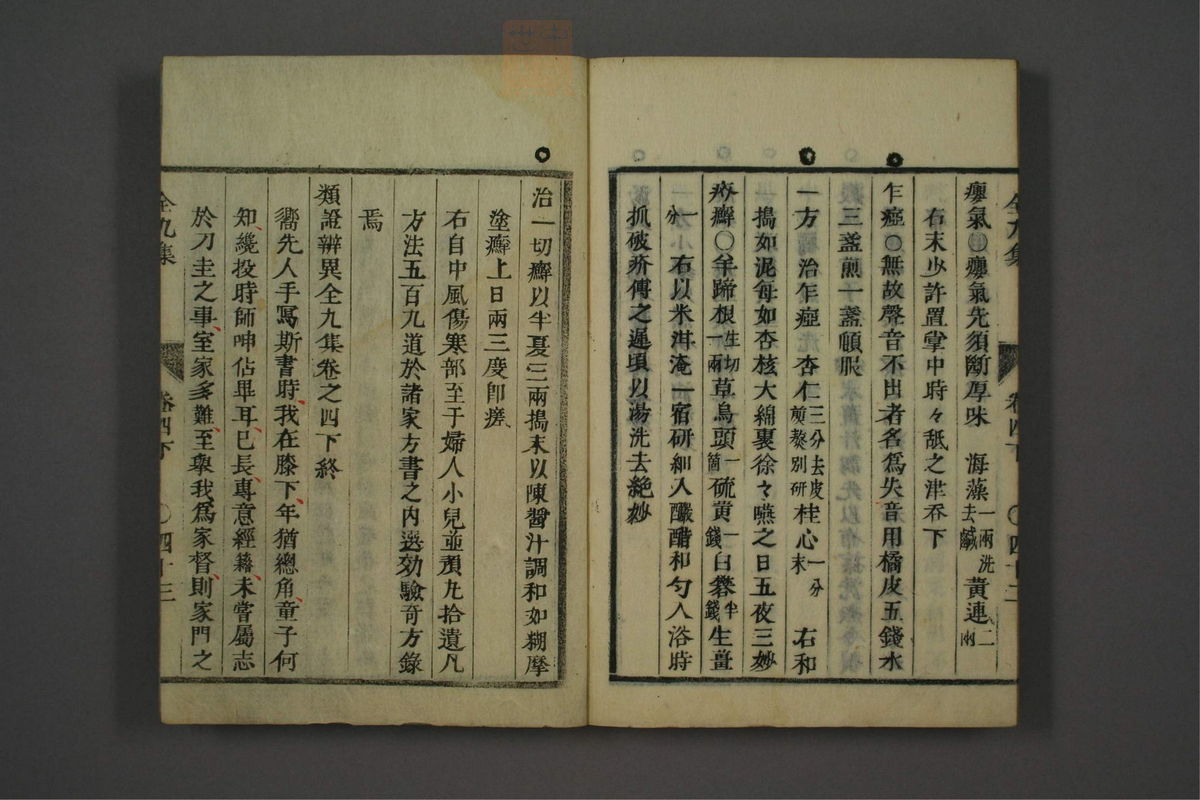 癭氣○癭氣先須斷厚味　海藻一兩洗去鹹黃連二兩
右末少許置掌中時々舐之津吞下
乍瘂○無故聲音不出者名爲失音用橘皮五錢水
三盞煎一盞頓服
一方　治乍瘂　杏仁三分去皮煎熬別研桂心一分末　右和
搗如泥每如杏核大綿裹徐々嚥之日五夜三妙
疥癬○羊蹄根生切一兩草烏頭一箇硫黃一錢白礬半錢生薑
一分　右以米泔淹一宿研細入釅醋和勻入浴時
抓破疥傅之遲頃以湯洗去絶妙
全九集　卷四下　○四十三
治一切癬以半夏三兩搗末以陳醬汁調和如糊摩
塗癬上日兩三度卽瘥
右自中風傷寒部至于婦人小兒並預九拾遺凡
方法五百九道於諸家方書之內選効驗奇方錄
焉
類證辨異全九集卷之四下終
嚮先人手寫斯書時我在膝下年猶總角童子何
知纔投時師呻佔畢耳已長專意經籍未嘗屬志
於刀圭之事室家多難至與我爲家督則家門之
全九集　卷四下　○四十三